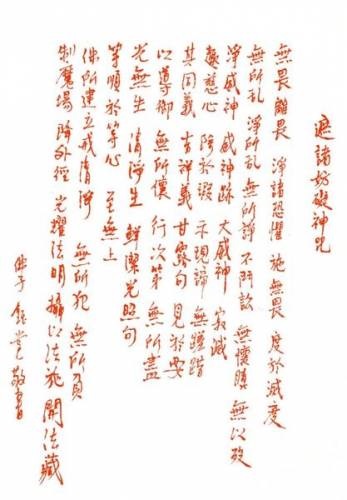 遮諸妨礙神咒
無畏離畏 淨諸恐懼 施無畏 度於滅度
無所乱 淨所乱 無所諍 不鬥訟 無懷瞋 無以破
淨威神 威神跡 大威神 寂滅
趣慈心 除於瑕 示現諦 無
其因義 吉祥義 甘露句 見於要
以導御 無所懷 行次第 無所盡
光無生 清淨生 鮮潔光照句
等順於等心 至無上
佛所建立戒清淨 無所犯 無所負
制魔場 降外徑 光耀法明攝以法施 開法藏
佛子 敬書